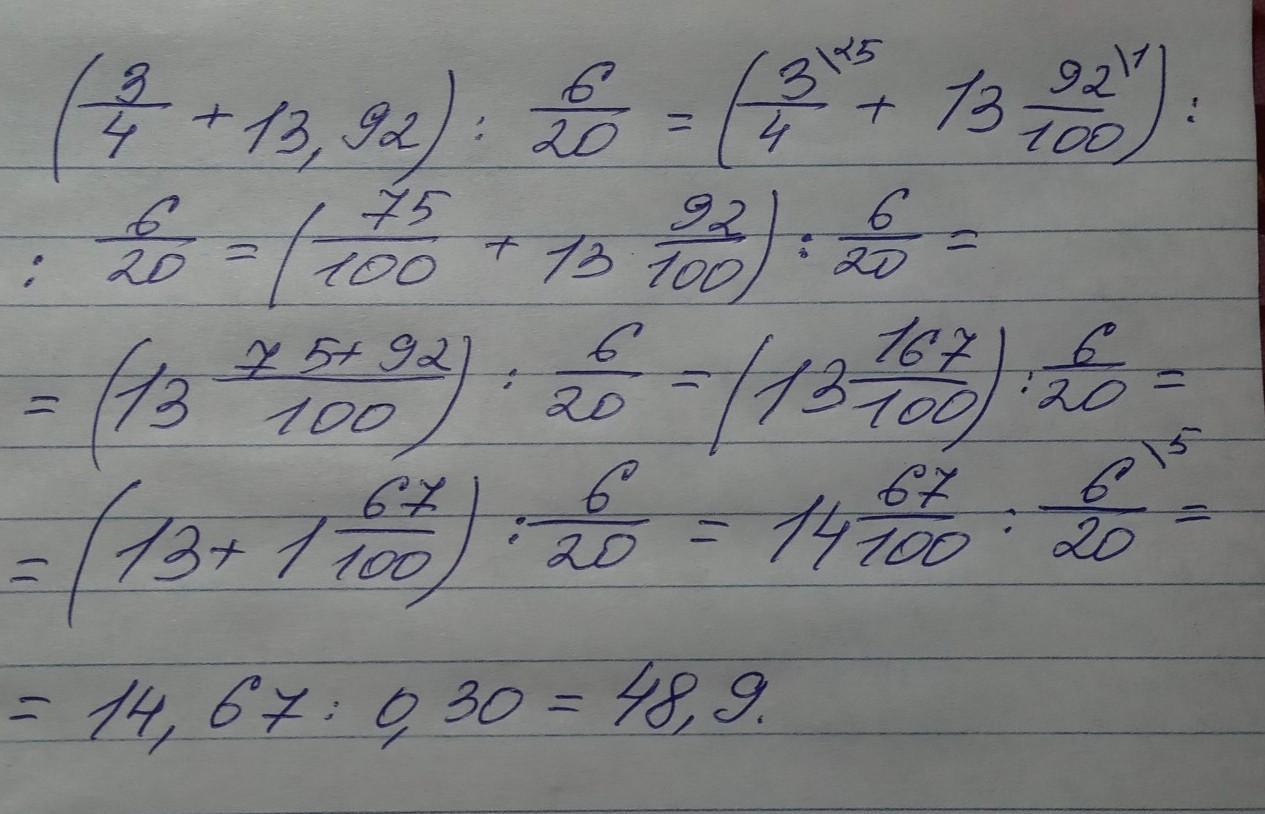 (3/4 + 13,92) : 6/20 = (3\25/4 + 13 92\1/100) :
: 6/20 = (75/100 + 13 92/100) : 6/20 =
= (13 75+92/100) : 6/20 = (13 167/100) : 6/20 =
= (13 + 1 67/100) : 6/20 = 14 67/100 : 6\5/20 =
= 14,67 : 0,30 = 48,9.